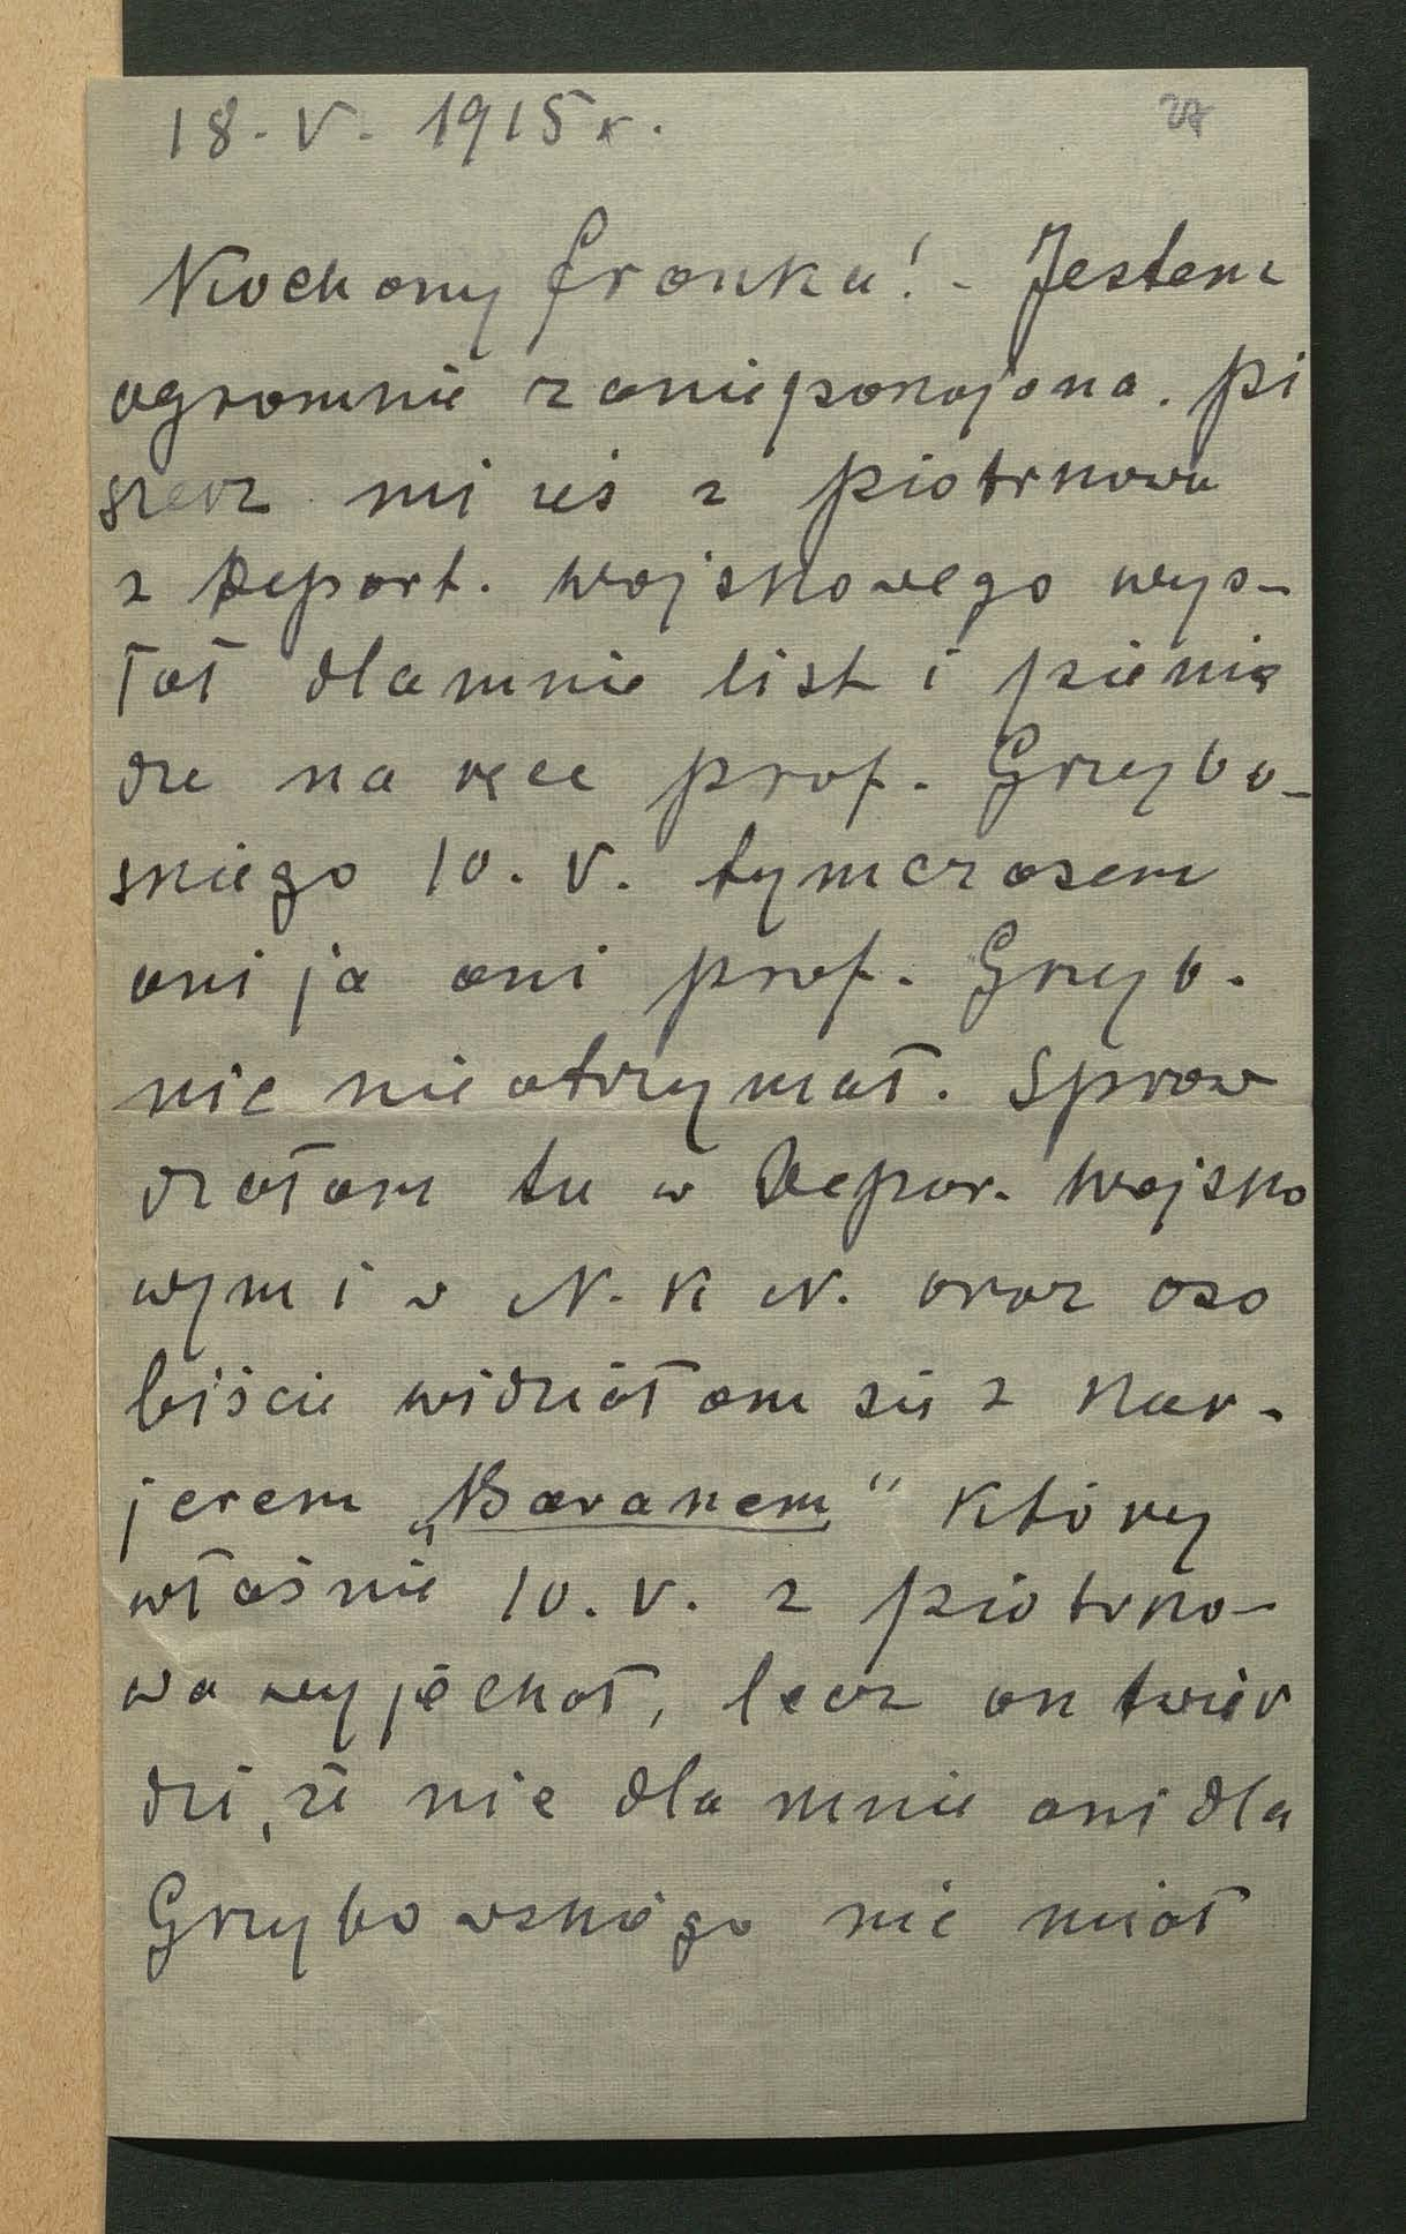 18. V. 1915 r.
27
Kochany Franku! - Jestem
ogromnie zaniepokojona. Pi
szesz mi żeś z Piotrkowa
z Depart. Wojskowego wys-
łał dlamnie list i pienią
dze na ręce prof. Grzybo-
skiego 10. V. tymczasem
ani ja ani prof. Grzyb.
nic nie otrzymał. Spraw
dzałam tu w Depar. Wojsko
wym i w N. K N. oraz oso
biście widziałam się z Kur-
jerem „Baranem" który
właśnie 10. V. z Piotrko-
wa wyjechał, lecz on twier
dzi, że nie dla mnie ani dla
Grzybowskiego nie miał